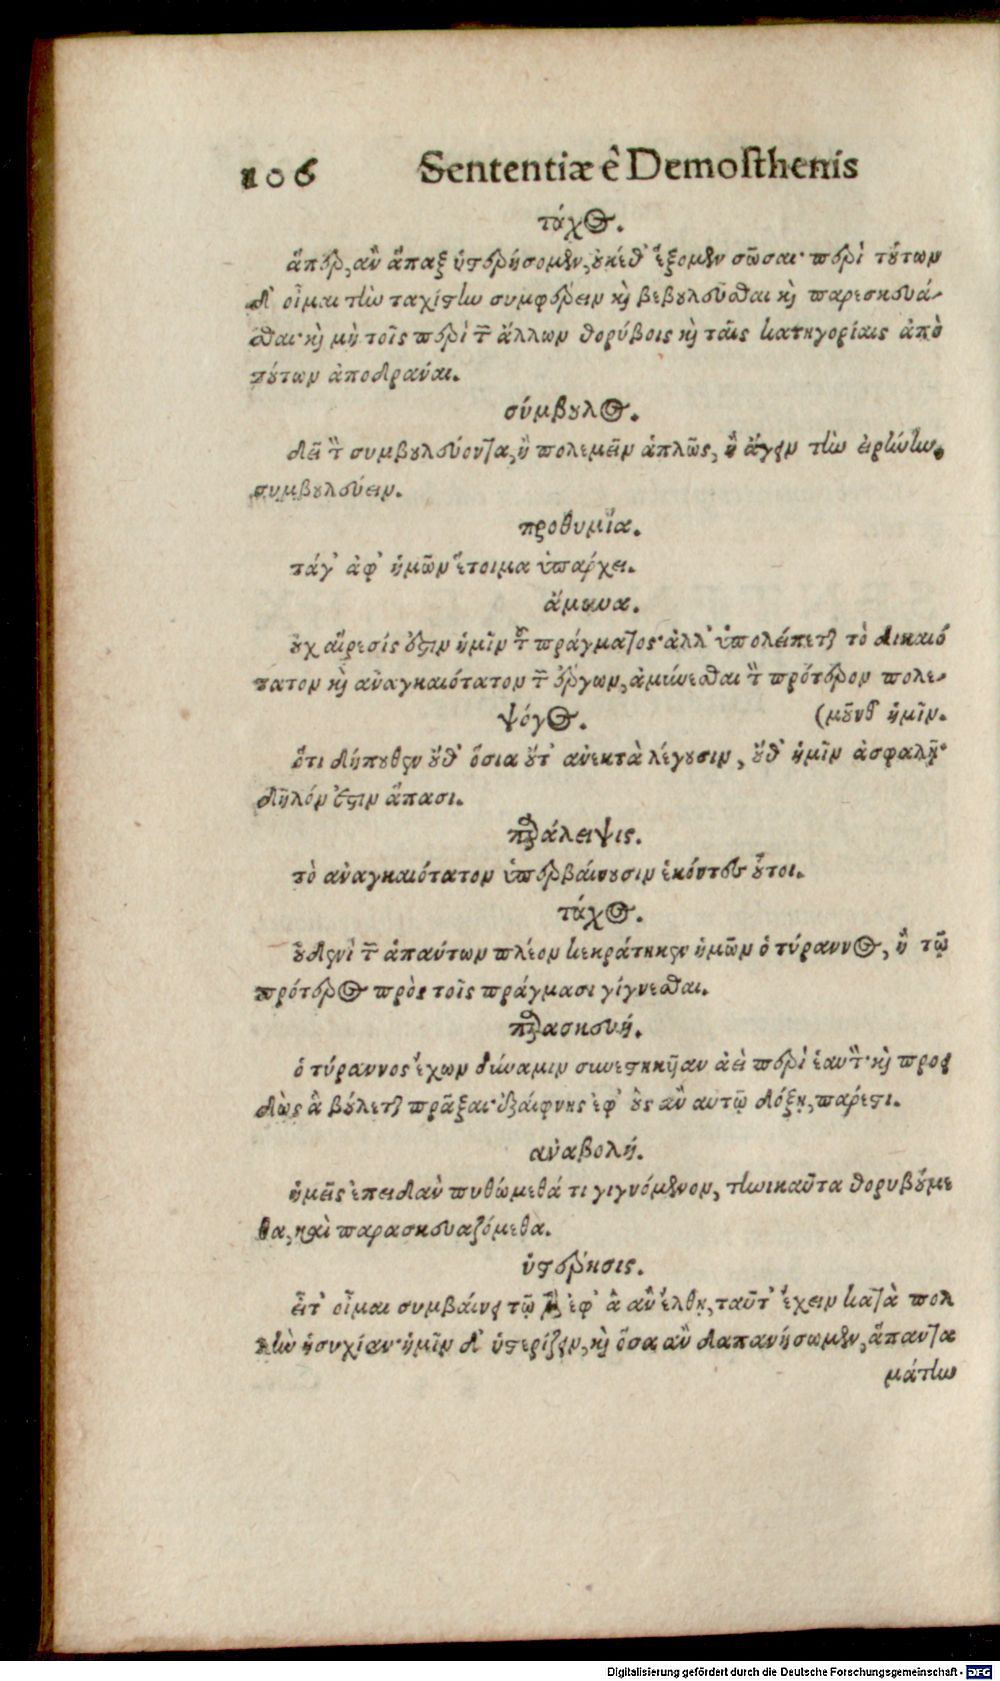 106 Sententiæ è Demosthenis
τάχος.
ἅπερ, ἂν ἅπαξ ὑστερήσομεν, οὐκέθ᾽ ἕξομεν σῶσαι· περὶ τούτων
δ᾽ οἶμαι τὴν ταχίστην συμφέρειν καὶ βεβουλεῦσθαι καὶ παρεσκευά-
σθαι· καὶ μὴ τοῖς περὶ τῶν ἄλλων θορύβοις καὶ ταῖς κατηγορίαις ἀπὸ
τούτων ἀποδρᾶναι.
σύμβουλος.
δεῖ τὸν συμβουλεύοντα, ἢ πολεμεῖν ἁπλῶς, ἢ ἄγειν τὴν εἰρήνην
συμβουλεύειν.
προθυμία.
τάγ᾽ ἀφ᾽ ἡμῶν ἕτοιμα ὑπάρχει.
ἄμυνα.
οὐχ αἵρεσίς ἐστιν ἡμῖν τοῦ πράγματος· ἀλλ᾽ ὑπολείπεται τὸ δικαιό
τατον καὶ ἀναγκαιότατον τῶν ἔργων, ἀμύνεσθαι τὸν πρότερον πολε-
ψόγος. (μοῦνθ᾽ ἡμῖν.
ὅτι δήπουθεν οὔθ᾽ ὅσια οὔτ᾽ ἀνεκτὰ λέγουσιν, οὔθ᾽ ἡμῖν ἀσφαλῆ·
δῆλόν ἐστιν ἅπασι.
παράλειψις.
τὸ ἀναγκαιότατον ὑπερβαίνουσιν ἑκόντες οὗτοι.
τάχος.
οὐδενὶ τῶν ἁπάντων πλέον κεκράτηκεν ἡμῶν ὁ τύραννος, ἢ τῷ
πρότερος πρὸς τοῖς πράγμασι γίγνεσθαι.
παρασκευή.
ὁ τύραννος ἔχων δύναμιν συνεστηκῦαν ἀεὶ περὶ ἑαυτὸν· καὶ προει
δὼς ἃ βούλεται πρᾶξαι· ἐξαίφνης ἐφ᾽ οὓς ἂν αὐτῷ δόξῃ, πάρεστι.
ἀναβολή.
ἡμεῖς ἐπειδὰν πυθώμεθά τι γιγνόμενον, τηνικαῦτα θορυβούμε
θα, καὶ παρασκευαζόμεθα.
ὑστέρησις.
εἶτ᾽ οἶμαι συμβαίνει τῷ μὲν ἐφ᾽ ἃ ἂν ἔλθῃ, ταῦτ᾽ ἔχειν κατὰ πολ
λὴν ἡσυχίαν· ἡμῖν δ᾽ ὑστερίζειν, καὶ ὅσα ἂν δαπανήσωμεν, ἅπαντα
μάτην
Digitalisierung gefördert durch die Deutsche Forschungsgemeinschaft - DFG